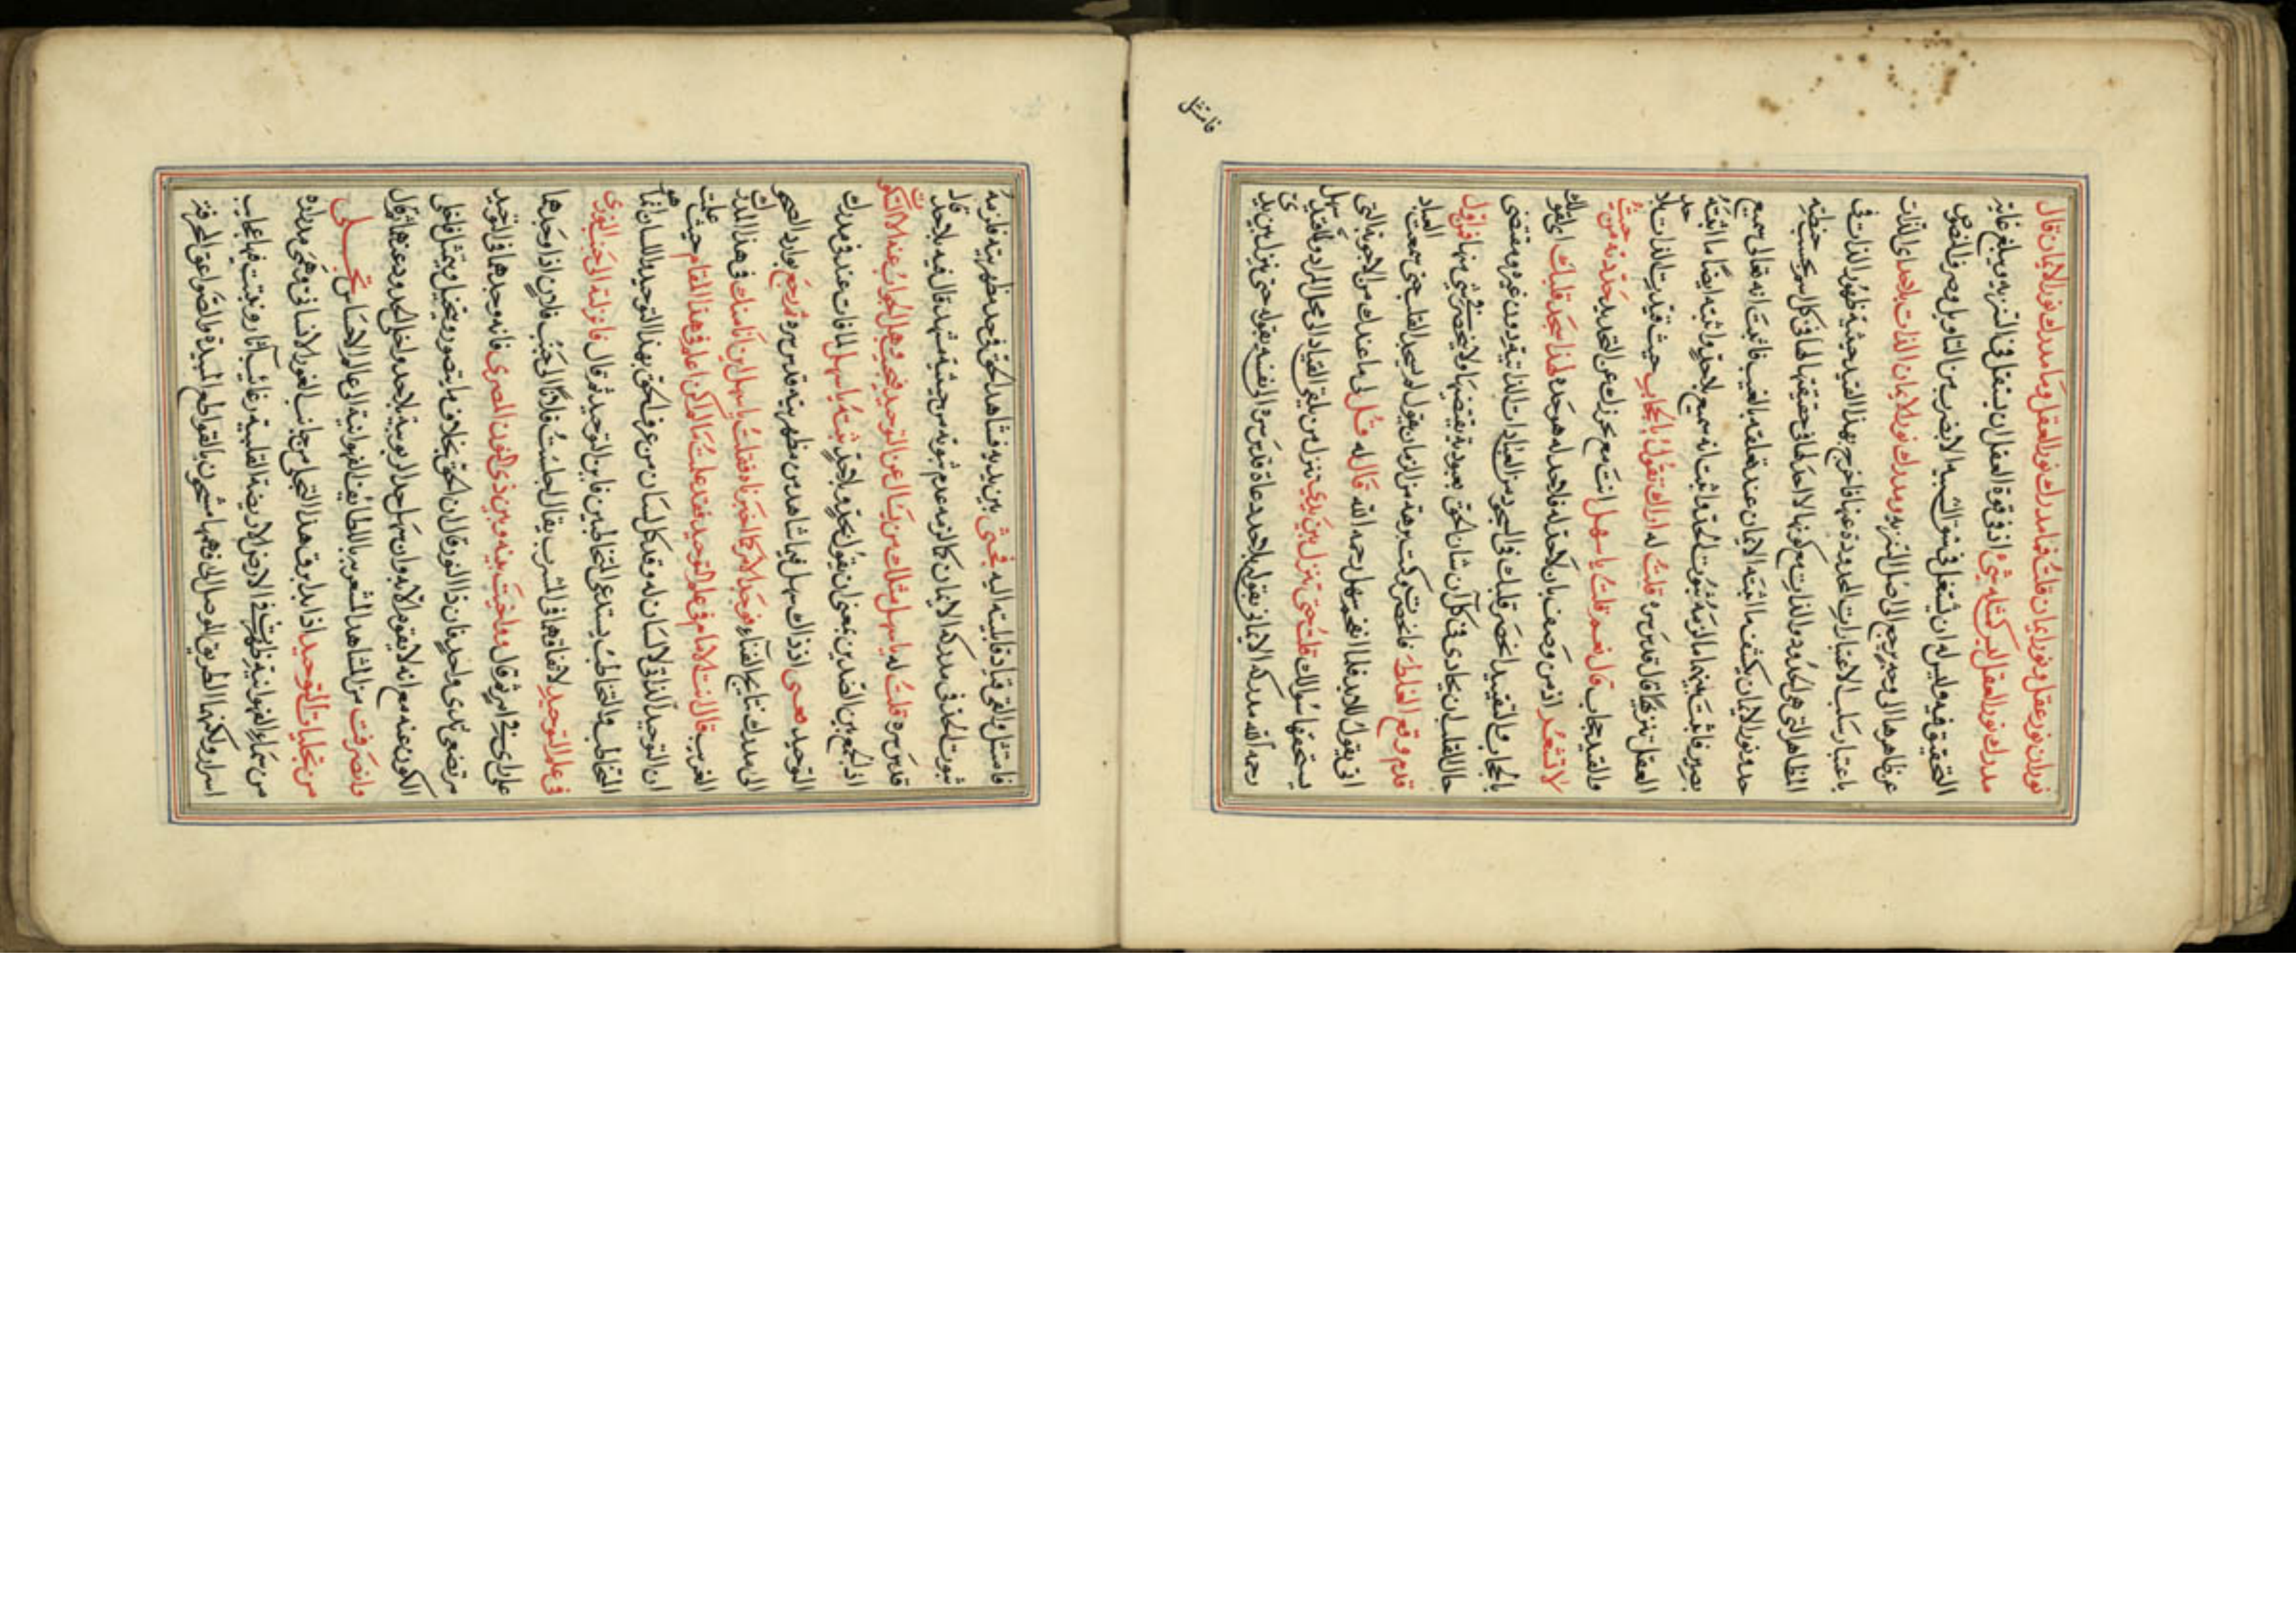 نوران نور عقل ونور ايمان قلت فما مدرك نور العقل وما مدرك نور الايمان قال
مدرك نور العقل ليس كمثله شئ اذ في قوة العقل ان يستقل في التنزيه ويبلغ غايته
التحقيق فيه وليس له ان يشتغل في سوق التشبيه الا بضرب من التاويل وصرف النصوص
عن ظاهرها الى وجه يرجع الى اصل التنزيه ومدرك نور الايمان الذات بلا حد اي الذات
باعتبار سلب الاعتبارات المحدودة عنها فاخرج بهذا القيد حيثية ظهور الذات في
المظاهر التي هي الحدود والذات مع كونها لا حد لها في حقيقتها لها في كل اسم بحسب حيطته
حد ونور الايمان يكشف ما اثبته الايمان عند تعلقه بالغيب فاثبت انه تعالى سميع
بصير فاثبت بينهما ما لزمه ثبوت الحد واثبت انه سميع بلا حد واثبته ايضا ما اثبته
العقل تنزيها قال قدس سره قلت له اراك تقول بالحجاب حيث قيدت الذات بلا حد
والقيد حجاب قال نعم قلت يا سهل انت مع تحرزك عن التحديد حددته من حيث
لا تشعر اذ من وصف بان لا حد له فلا حد له هو حده لهذا سجد قلبك اي لقولك
بالحجاب والتقييد انحصر قلبك في السجود من العبادات الذاتية دون غيره ومقتضى
حال القلب ان يحاذي في كل آن شان الحق بعبودية يقتضيها ولا ينحصر في شئ منها فمن اول
قدم وقع الغلط فانحصرت وكنت برهة من الزمان يقول لم يسجد القلب حتى سمعت العباد
اني يقول للابد فلما افحم سهل رحمه الله قال له قل لي ما عندك من الاجوبة التي
يستحقها سؤالك قلت حتى تنزل بين يدي تنزل من يلقي القياد الى محل المراد وللتقيد سهل
رحمه الله مدركه الايماني بقوله بلا حد دعاه قدس سره الى نفسه بقوله حتى تنزل بين يدي
فامتثل
فامتثل والقى قياد قابليته اليه فجثى بين يديه فشاهد الحق في حد مظهريته فلزمه
ثبوت الحد في مدركه الايماني كما لزمه عدم ثبوته من حيثية شهد قال فيه بلا حد قال
قدس سره قلت له يا سهل مثلك من يسال عن التوحيد فيجيب وهل الجواب عنه الا السكوت
اذ الجمع بين الضدين بمعنى ان يقول بحد وبلا حد تنبه يا سهل لما فات عنه في مدرك
التوحيد ففنى اذ ذاك سهل فيما شاهد من مظهريته قدس سره ثم رجع بوارد الصحو
الى مدرك نتايج الفناء فوجد الامر كما اخبرناه فقلت يا سهل اين انا منك في هذا المدرك
الغريب قال انت الامام في علم التوحيد فقد علمت ما لم اكن اعلم في هذا المقام حيث علمت
ان التوحيد الذاتي لا لسان له وقد كل لسان من عرف الحق بهذا التوحيد واللسان انما هو
للمخاطب والتخاطب يستدعي المتخاطبين فاين التوحيد ثم قال فانزلته الى جنب النوري
في علم التوحيد لاتفاقهما في المشرب يقال اجلست فلانا الى جنب فلان اذا وجدهما
على راي في امر ثم قال وواخيت بينه وبين ذي النون المصري فانه وجدهما في التوحيد
مرتضعي ثدي واحد فان ذا النون قال ان الحق بخلاف ما يتصور ويتخيل ويتمثل فاخلى
الكون عنه مع انه لا يقوم الا به وان سهل حد الربوبية بلا حد واخلى الحدود عنها ثم قال
وانصرفت من المشاهد الشعرية باللطايف القهوانية الى عالم الاحساس تجلى
من تجليات التوحيد اذا بدا برق هذا التجلي من جانب الغور الانساني وهي مدرارة
من سماء القهوانية ظهرت في الارض الاريضة القلبية رغايب آثاره ونبتت فيها عجايب
اسراره ولكنها الطريق الموصل الى فهمها مشحون بالقواطع المبيدة والصواعق المحرقة